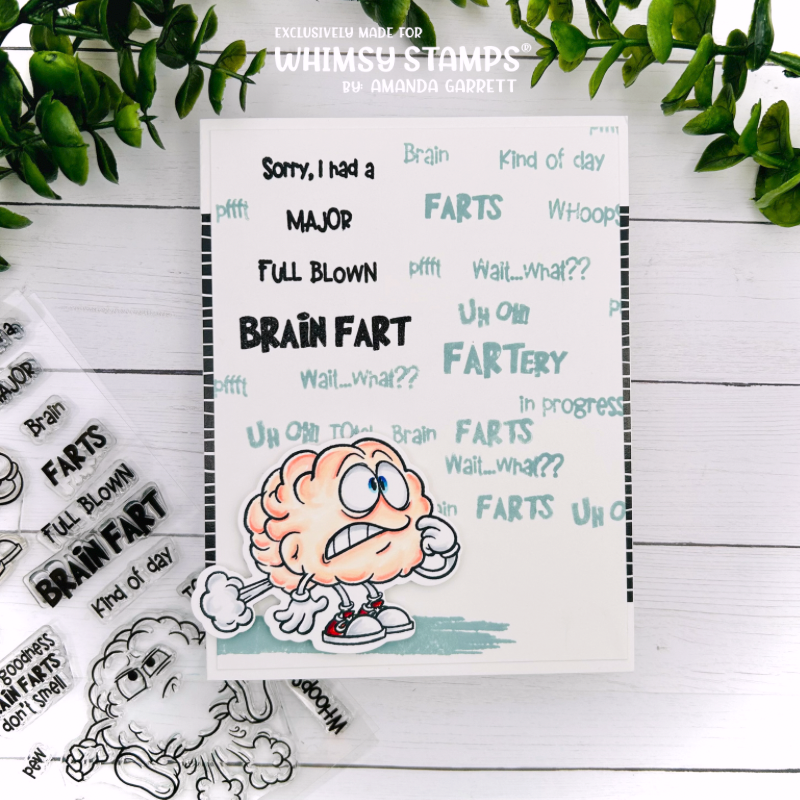 EXCLUSIVELY MADE FOR
WHIMSY STAMPS®
BY: AMANDA GARRETT
Sorry, I had a
Brain
Kind of day
pffft
MAJOR
FARTS
WHoops
FULL BLOWN
pffft
Wait...what??
BRAIN FART
UH OH!
FARTERY
pffft
Wait...what??
in progress
UH OH!
TOtal
Brain
FARTS
Wait...what??
ain
FARTS
UH O
MAJOR
Brain
FARTS
FULL BLOWN
BRAIN FART
Kind of day
goodness
AIN FARTS
don't smell
pew
WHoops